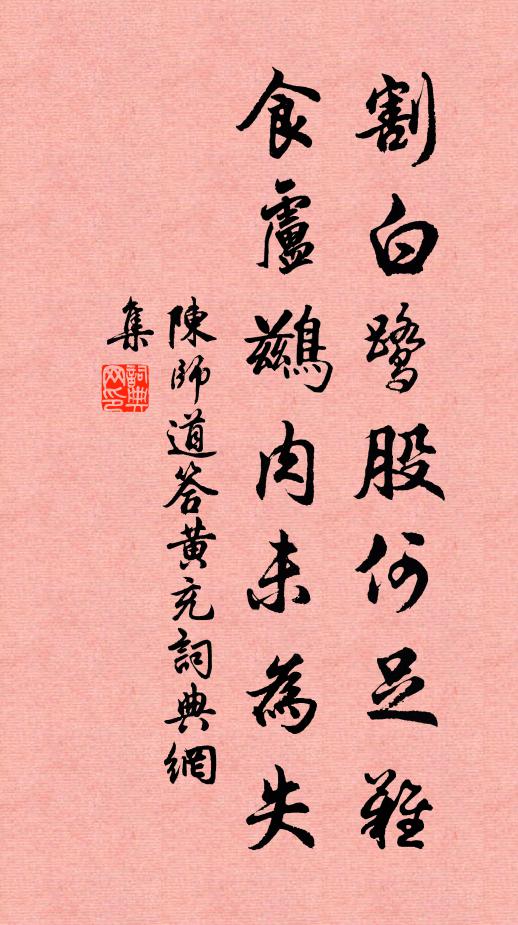 割白鷺股何足難
食鸕鷀肉未為失
陳師道答黃充詞典網
集
詞典
网印